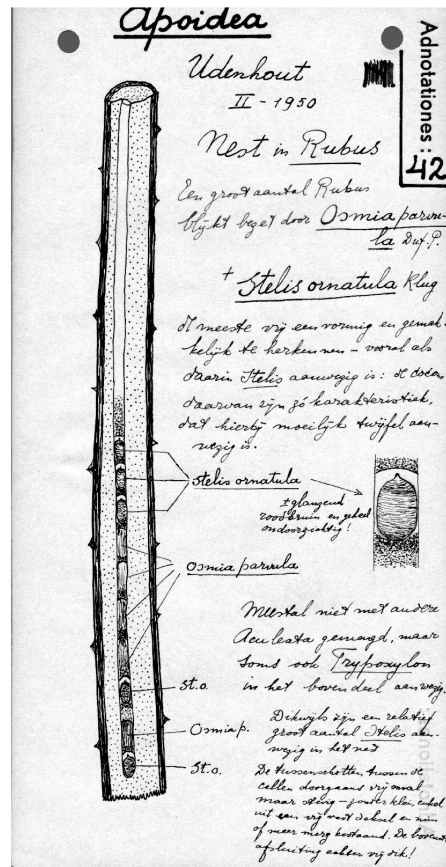 Apoidea
Adnotationes : 42
Udenhout
II - 1950
Nest in Rubus
Een groot aantal Rubus
blijkt bezet door Osmia parvu-
la Duf. P.
+ Stelis ornatula Klug
De meeste vrij eenvormig en gemak-
kelijk te herkennen - vooral als
daarin Stelis aanwezig is: de cocons
daarvan zijn zó karakteristiek,
dat hierbij moeilijk twijfel aan-
wezig is.
Stelis ornatula
± glanzend
roodbruin en geheel
ondoorzichtig!
Osmia parvula
Meestal niet met andere
Aculeata gemengd, maar
soms ook Trypoxylon
in het bovendeel aanwezig.
St.o.
Osmia p.
St.o.
Dikwijls zijn een relatief
groot aantal Stelis aan-
wezig in het nest
De tussenschotten tussen de
cellen doorgaans vrij smal
maar stevig - zonder klei, enkel
uit een vrij vast deksel en min
of meer merg bestaand. De bovenste
afsluiting echter vrij dik!